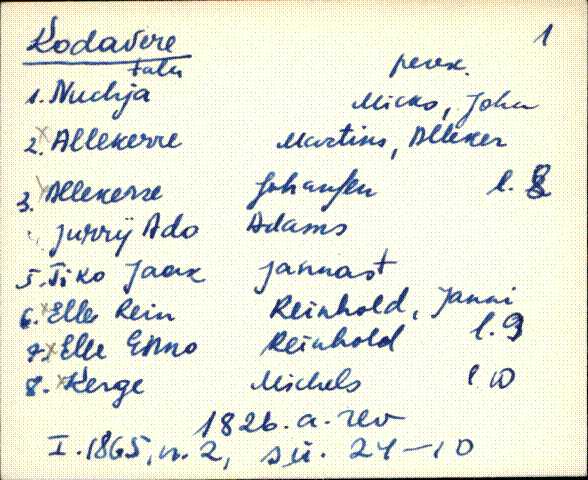 Kodavere 1
talu perek.
1. Nuchja Micko, Joha
2. Allekerre Martins, Alleker
3. Allekerre Johansen l. 8
Jurry Ado Adams
5. Tiko Jaak Jannast
6. Elle Rein Reinhold, Janni
7. Elle Enno Reinhold l. 9
8. Kerge Michels l. 10
1826. a. rev
I. 1865, n. 2, sü. 24-10